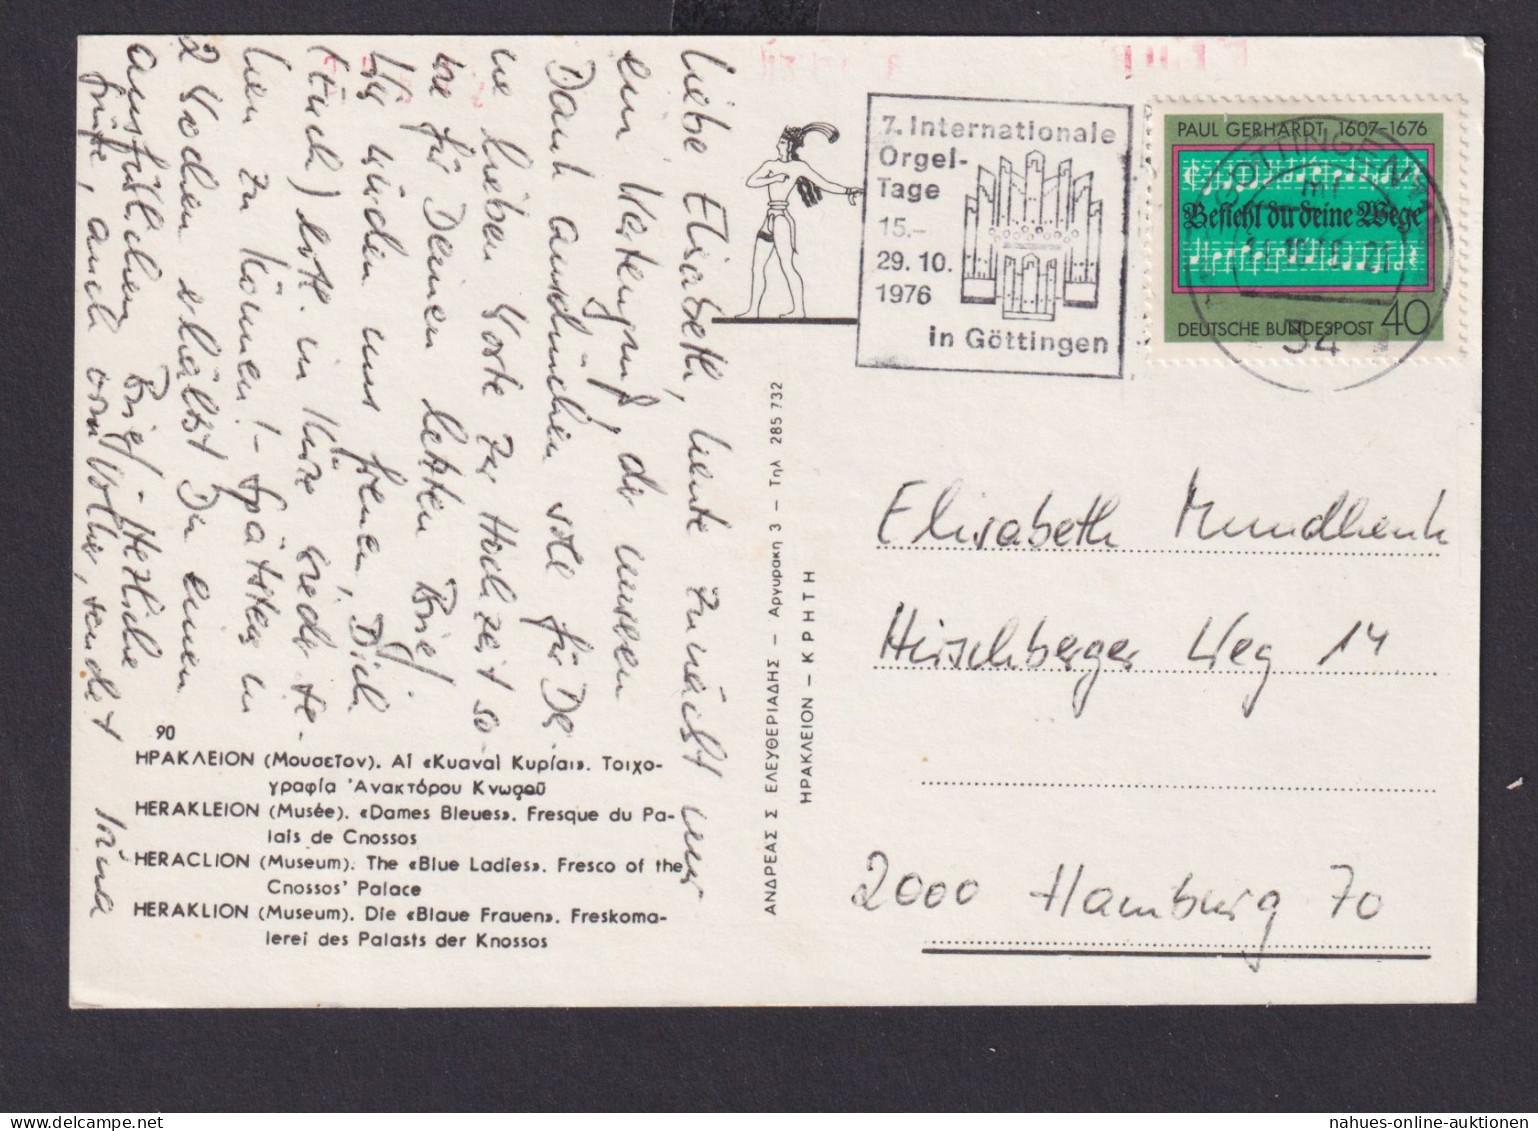 Liebe Elisabeth, heute zunächst nur
ein Kartengruß, der unseren
Dank ausdrücken soll für Dei-
ne lieben Worte zur Hochzeit so-
wie für Deinen letzten Brief.
Wir würden uns freuen, Dich
(Euch) evtl. in Kürze wieder se-
hen zu können! - Spätstens in
2 Wochen erhältst Du einen
ausführlichen Brief. Herzliche
Grüße, auch von Volker, sendet
Irina
90
ΗΡΑΚΛΕΙΟΝ (Μουσεῖον). Αἱ «Κυαναῖ Κυρίαι». Τοιχο-
γραφία Ἀνακτόρου Κνωσοῦ
HERAKLEION (Musée). «Dames Bleues». Fresque du Pa-
lais de Cnossos
HERACLION (Museum). The «Blue Ladies». Fresco of the
Cnossos' Palace
HERAKLION (Museum). Die «Blaue Frauen». Freskoma-
lerei des Palasts der Knossos
ΑΝΔΡΕΑΣ Σ ΕΛΕΥΘΕΡΙΑΔΗΣ – Αργυρακη 3 – Τηλ 285 732
ΗΡΑΚΛΕΙΟΝ - ΚΡΗΤΗ
7. Internationale
Orgel-
Tage
15.–
29. 10.
1976
in Göttingen
PAUL GERHARDT 1607-1676
Befiehl du deine Wege
DEUTSCHE BUNDESPOST 40
GÖTTINGEN
34
Elisabeth Mundhenk
Hirschberger Weg 14
2000 Hamburg 70
nahues-online-auktionen